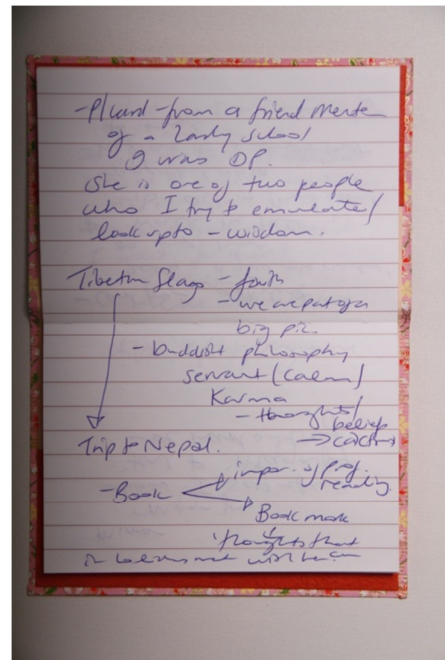 - Plant - from a friend Mentor
of a Lady school
I was DP.
She is one of two people
who I try to emmulate/
look upto - wisdom.
Tibetan flags - faith
- we are part of a
big pic.
- buddist philosophy
servant (calm)
Karma
- thoughts/
beliefs
→ actions
Trip to Nepal.
impor. of prof.
reading.
- Book
Book mark
thoughts that